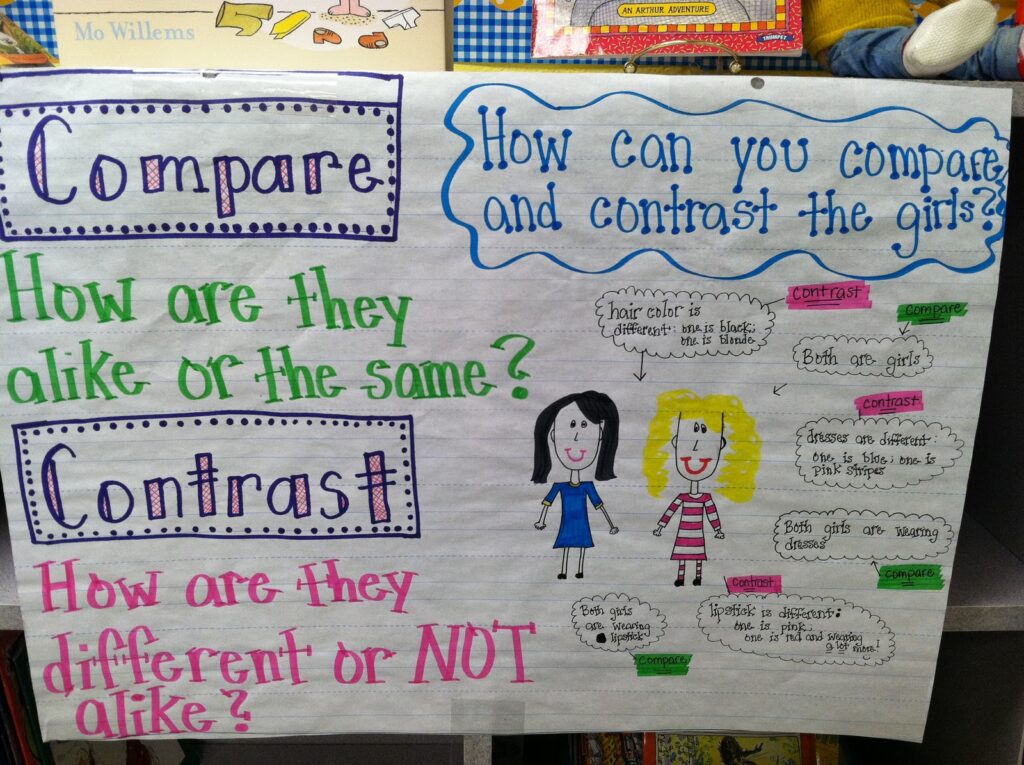 Mo Willems
AN ARTHUR ADVENTURE
TRUMPET
Compare
How are they
alike or the same?
Contrast
How are they
different or NOT
alike?
How can you compare
and contrast the girls?
contrast
hair color is
different: one is black;
one is blonde
compare
Both are girls
contrast
dresses are different:
one is blue; one is
pink stripes
Both girls are wearing
dresses
compare
contrast
lipstick is different:
one is pink,
one is red and wearing
a lot more!
Both girls
are wearing
lipstick
compare